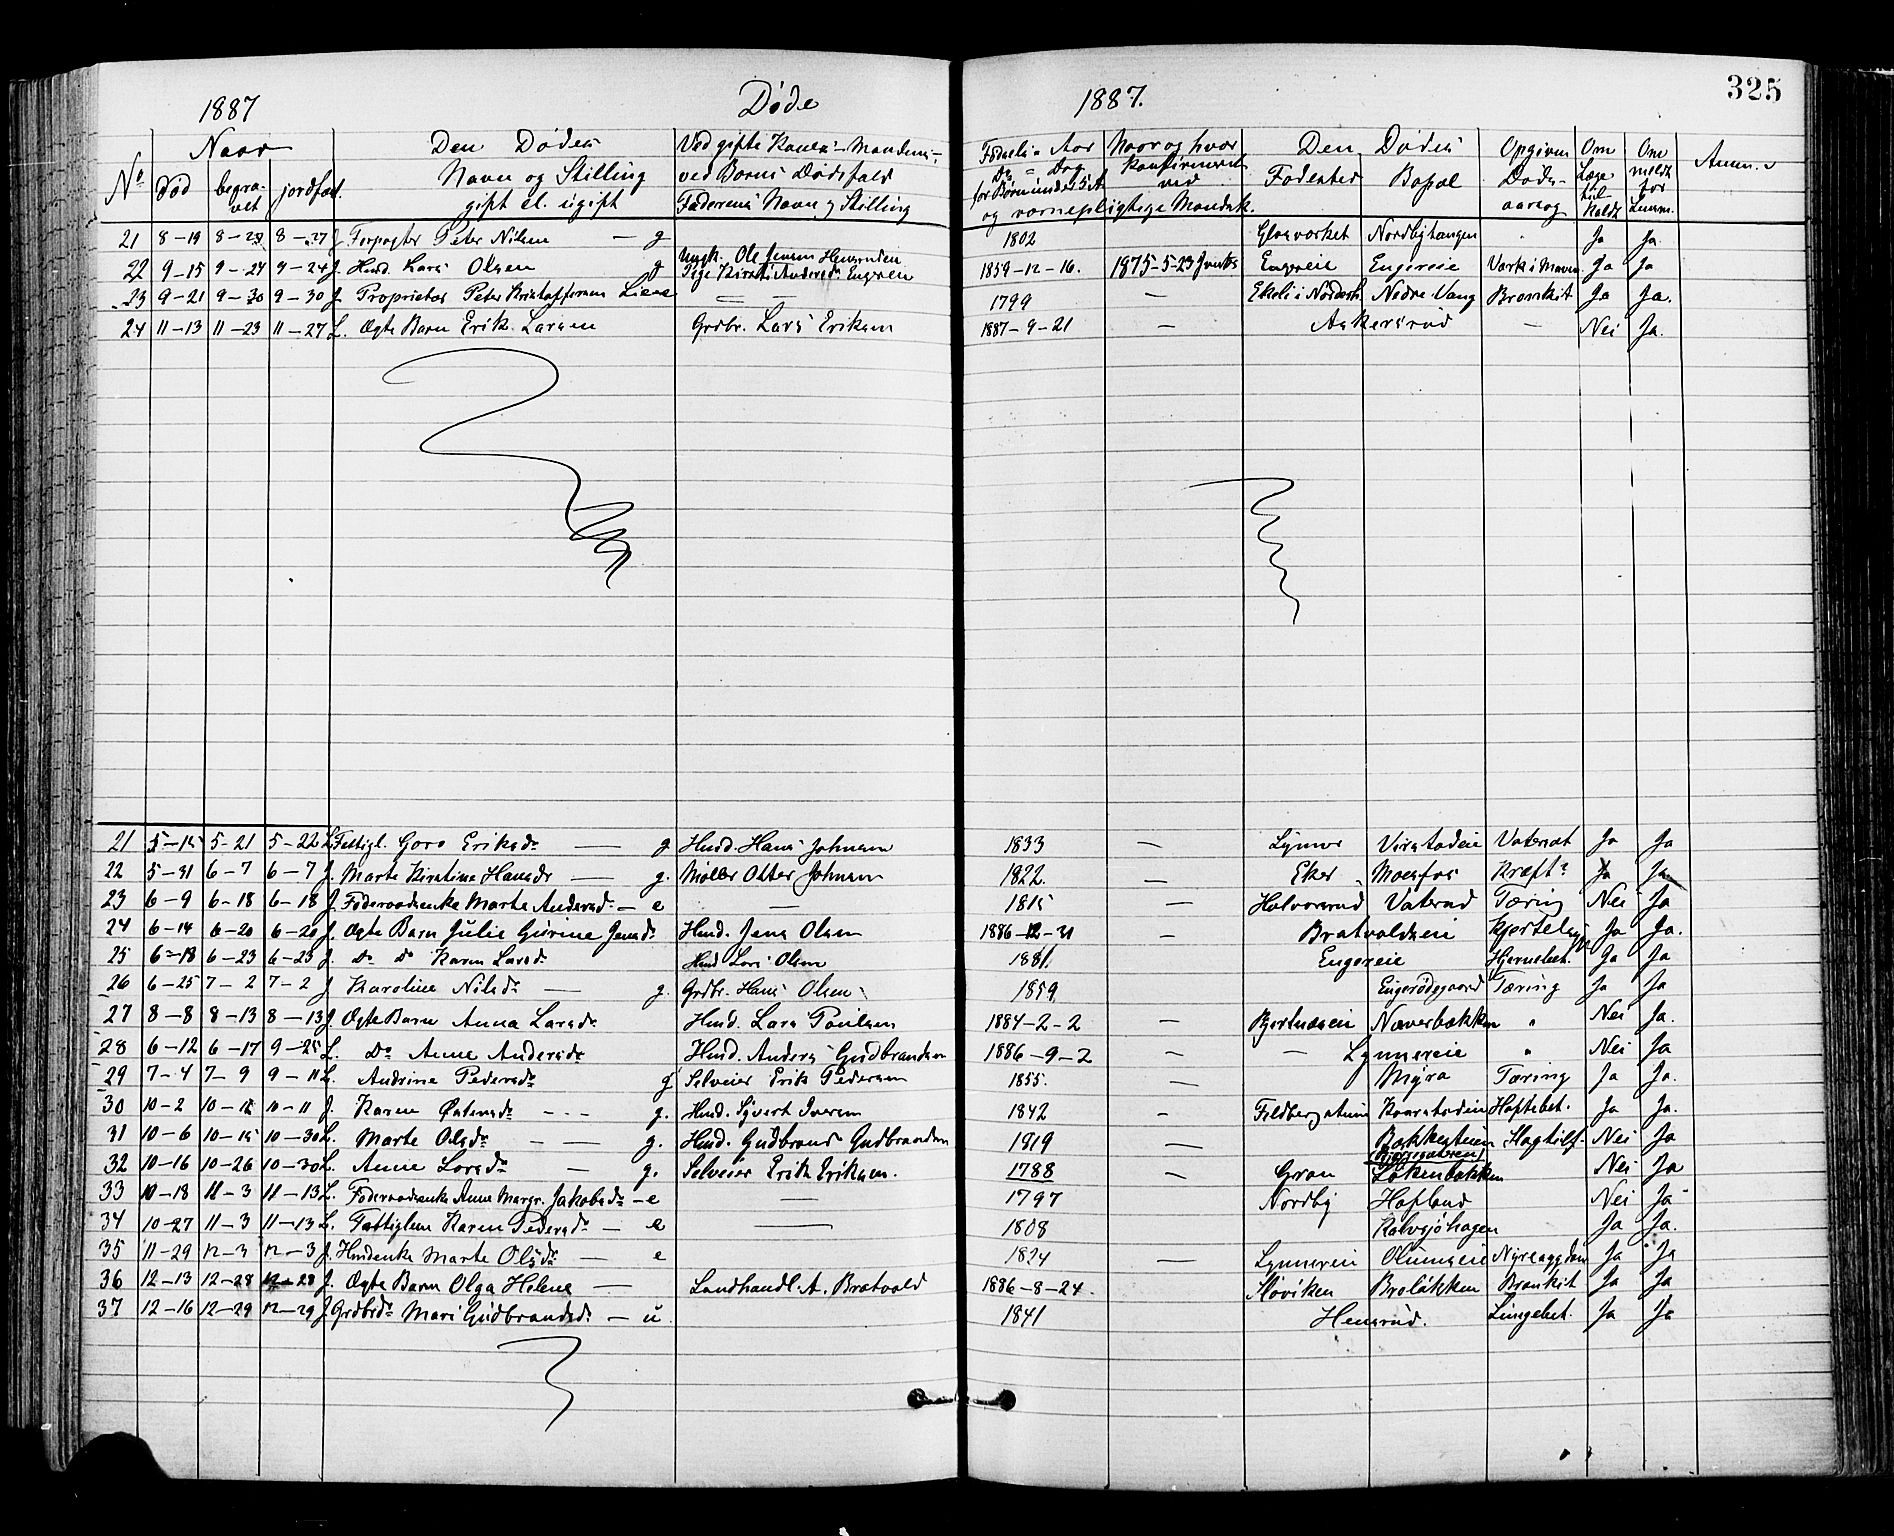 325
1887 Døde 1887.
No Naar død begravet jordfæst. Den Dødes Navn og Stilling gift el. ugift Ved gifte Koner: Mandens, ved Børns Dødsfald Faderens Navn og Stilling Fødsels-Aar Do - Dag for Børn under 5 A og vernepligtige Mandsk. Naar og hvor konfirmeret ved Den Dødes Fødested Bopæl Opgiven Døds-aarsag Om Læge tilkaldt Om meldt for Lensm. Anm.
21 8-19 8-27 8-27 J Forpagter Peter Nilsen — g 1802 Glasværket Nordbytangen Ja Ja.
22 9-15 9-24 9-24 J. Husd. Lars Olsen g Ungk. Ole Jensen Pige Kirsti Andersd. Engeren 1859-12-16. 1875-5-23 Engereie Engereie Værk i Maven Ja Ja
23 9-21 9-30 9-30 J. Proprietær Peter Kristoffersen Liene — — 1799 — Ekeli i Nedre Vang Bronkit Ja Ja.
24 11-13 11-23 11-27 L. Ægte Barn Erik Larsen Grdbr. Lars Eriksen 1887-9-21 — Askersrud — Nei Ja.
21 5-15 5-21 5-22 L. Fattigl. Goro Eriksdr — g Husd. Hans Johnsen 1833 — Lynner Vatersot Ja Ja
22 5-31 6-7 6-7 J. Marte Kirstine Hansdr — g. Møller Otter Johnsen 1822. — Eker Moesfos Kræft Ja Ja
23 6-9 6-18 6-18 J. Føderaadsenke Marte Andersdr — e — 1815 — Halvorsrud Vaterud Tæring Nei Ja
24 6-14 6-20 6-20 J. Ægte Barn Julie Gurine Jensdr Husd. Jens Olsen 1886-12-31 — Bratvoldseie Ja Ja.
25 6-18 6-23 6-23 J. Do Do Karen Larsdr Husd Lars Olsen 1881. Engereie Hjernebet. Ja Ja
26 6-25 7-2 7-2 J Karoline Nilsdr — g. Grdbr. Hans Olsen 1859 Tæring Ja Ja
27 8-8 8-13 8-13 J. Ægte Barn Anna Larsdr Husd. Lars Poulsen 1884-2-2 — Bjertnæseie Næverbækken " Nei Ja.
28 6-12 6-17 9-25 L. Do Anne Andersdr Husd. Anders Gudbrandsen 1886-9-2 — — Lynnereie " Nei Ja
29 7-4 7-9 9-11 L. Andrine Pedersdr g Selveier Erik Pedersen 1855. — Myra Tæring Ja Ja.
30 10-2 10-12 10-11 J. Karen Østensdr — g. Husd. Syvert Iversen 1842 — Hoftebet. Ja Ja.
31 10-6 10-15 10-30 L. Marte Olsdr — g. Husd. Gudbrand Gudbrandsen 1819 — Bækkesteien Slagtilf. Nei Ja
32 10-16 10-26 10-30 L. Anne Larsdr — g. Selveier Erik Eriksen. 1788 — Gran Løkenbakken Nei Ja
33 10-18 11-3 11-13 L. Føderaadsenke Anne Margr. Jakobsdr — e — 1797 Nordby Hofland Nei Ja
34 10-27 11-3 11-13 L. Fattiglem Karen Pedersdr — e — 1808 Kalvsjöhagen Ja Ja.
35 11-29 12-3 12-3 J. Husdenke Marte Olsdr — e 1824 — Lynnereie Olumseie Ja Ja
36 12-13 12-28 12-28 J. Ægte Barn Olga Helene — Landhandl. A. Bratvold 1886-8-24. Bronkit Ja Ja
37 12-16 12-29 12-29 J Grdbrdr Mari Gudbrandsdr — u 1841 Hensrud. Lungebet. Ja Ja